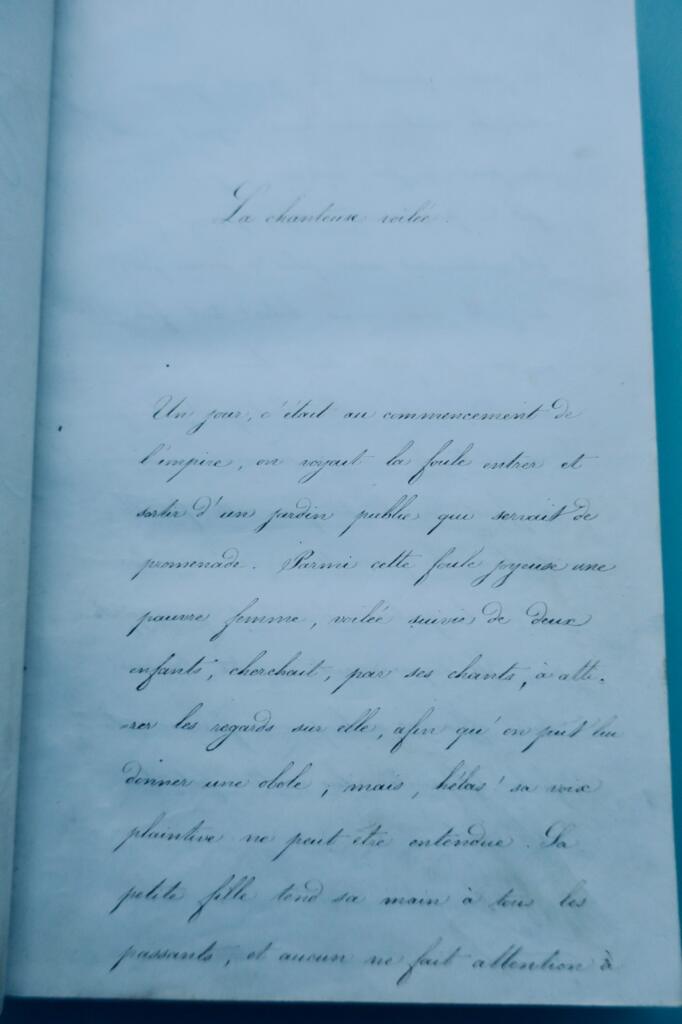 La chanteuse voilée.
Un jour, c'était au commencement de
l'empire, on voyait la foule entrer et
sortir d'un jardin public qui servait de
promenade. Parmi cette foule joyeuse une
pauvre femme, voilée suivie de deux
enfants, cherchait, par ses chants, à atti-
rer les regards sur elle, afin qu'on put lui
donner une obole, mais, hélas! sa voix
plaintive ne peut être entendue. Sa
petite fille tend sa main à tous les
passants, et aucun ne fait attention à